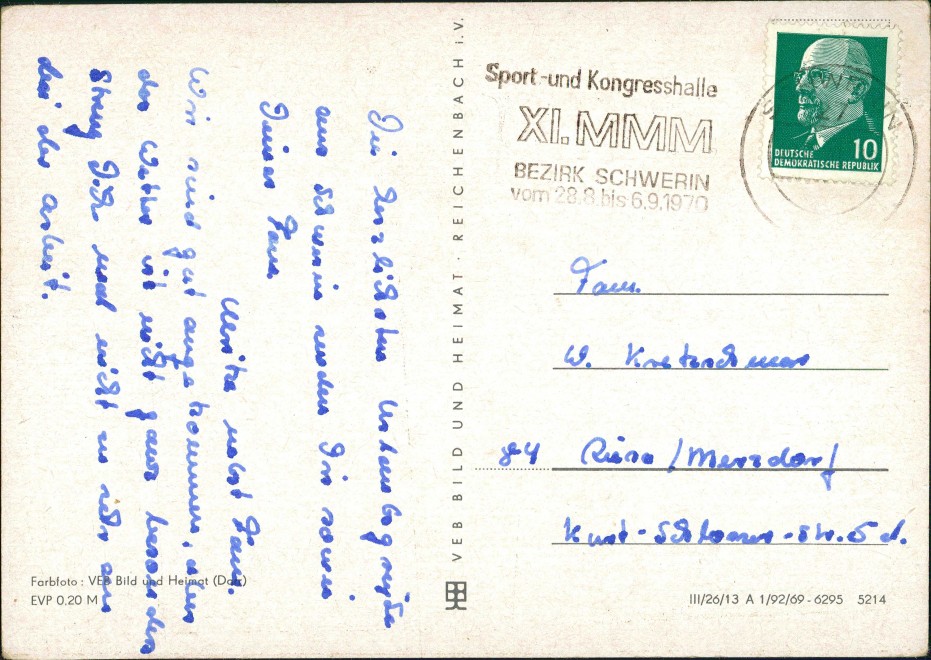 Die herzlichsten Urlaubsgrüße
aus Schwerin senden Dir sowie
Deiner Fam.
nebst Fam.
Wir sind gut angekommen, aber
das Wetter ist nicht ganz besonders
Streng Dich mal nicht so sehr an
bei der Arbeit.
Farbfoto: VEB Bild und Heimat
EVP 0.20 M
VEB BILD UND HEIMAT · REICHENBACH i. V.
Sport-und Kongresshalle
XI. MMM
BEZIRK SCHWERIN
vom 28.8. bis 6.9.1970
DEUTSCHE
DEMOKRATISCHE REPUBLIK
10
Fam.
W. Kretschmar
84 Riesa / Merzdorf
Kurt-Schlosser-Str. 5 d.
III/26/13 A 1/92/69-6295 5214